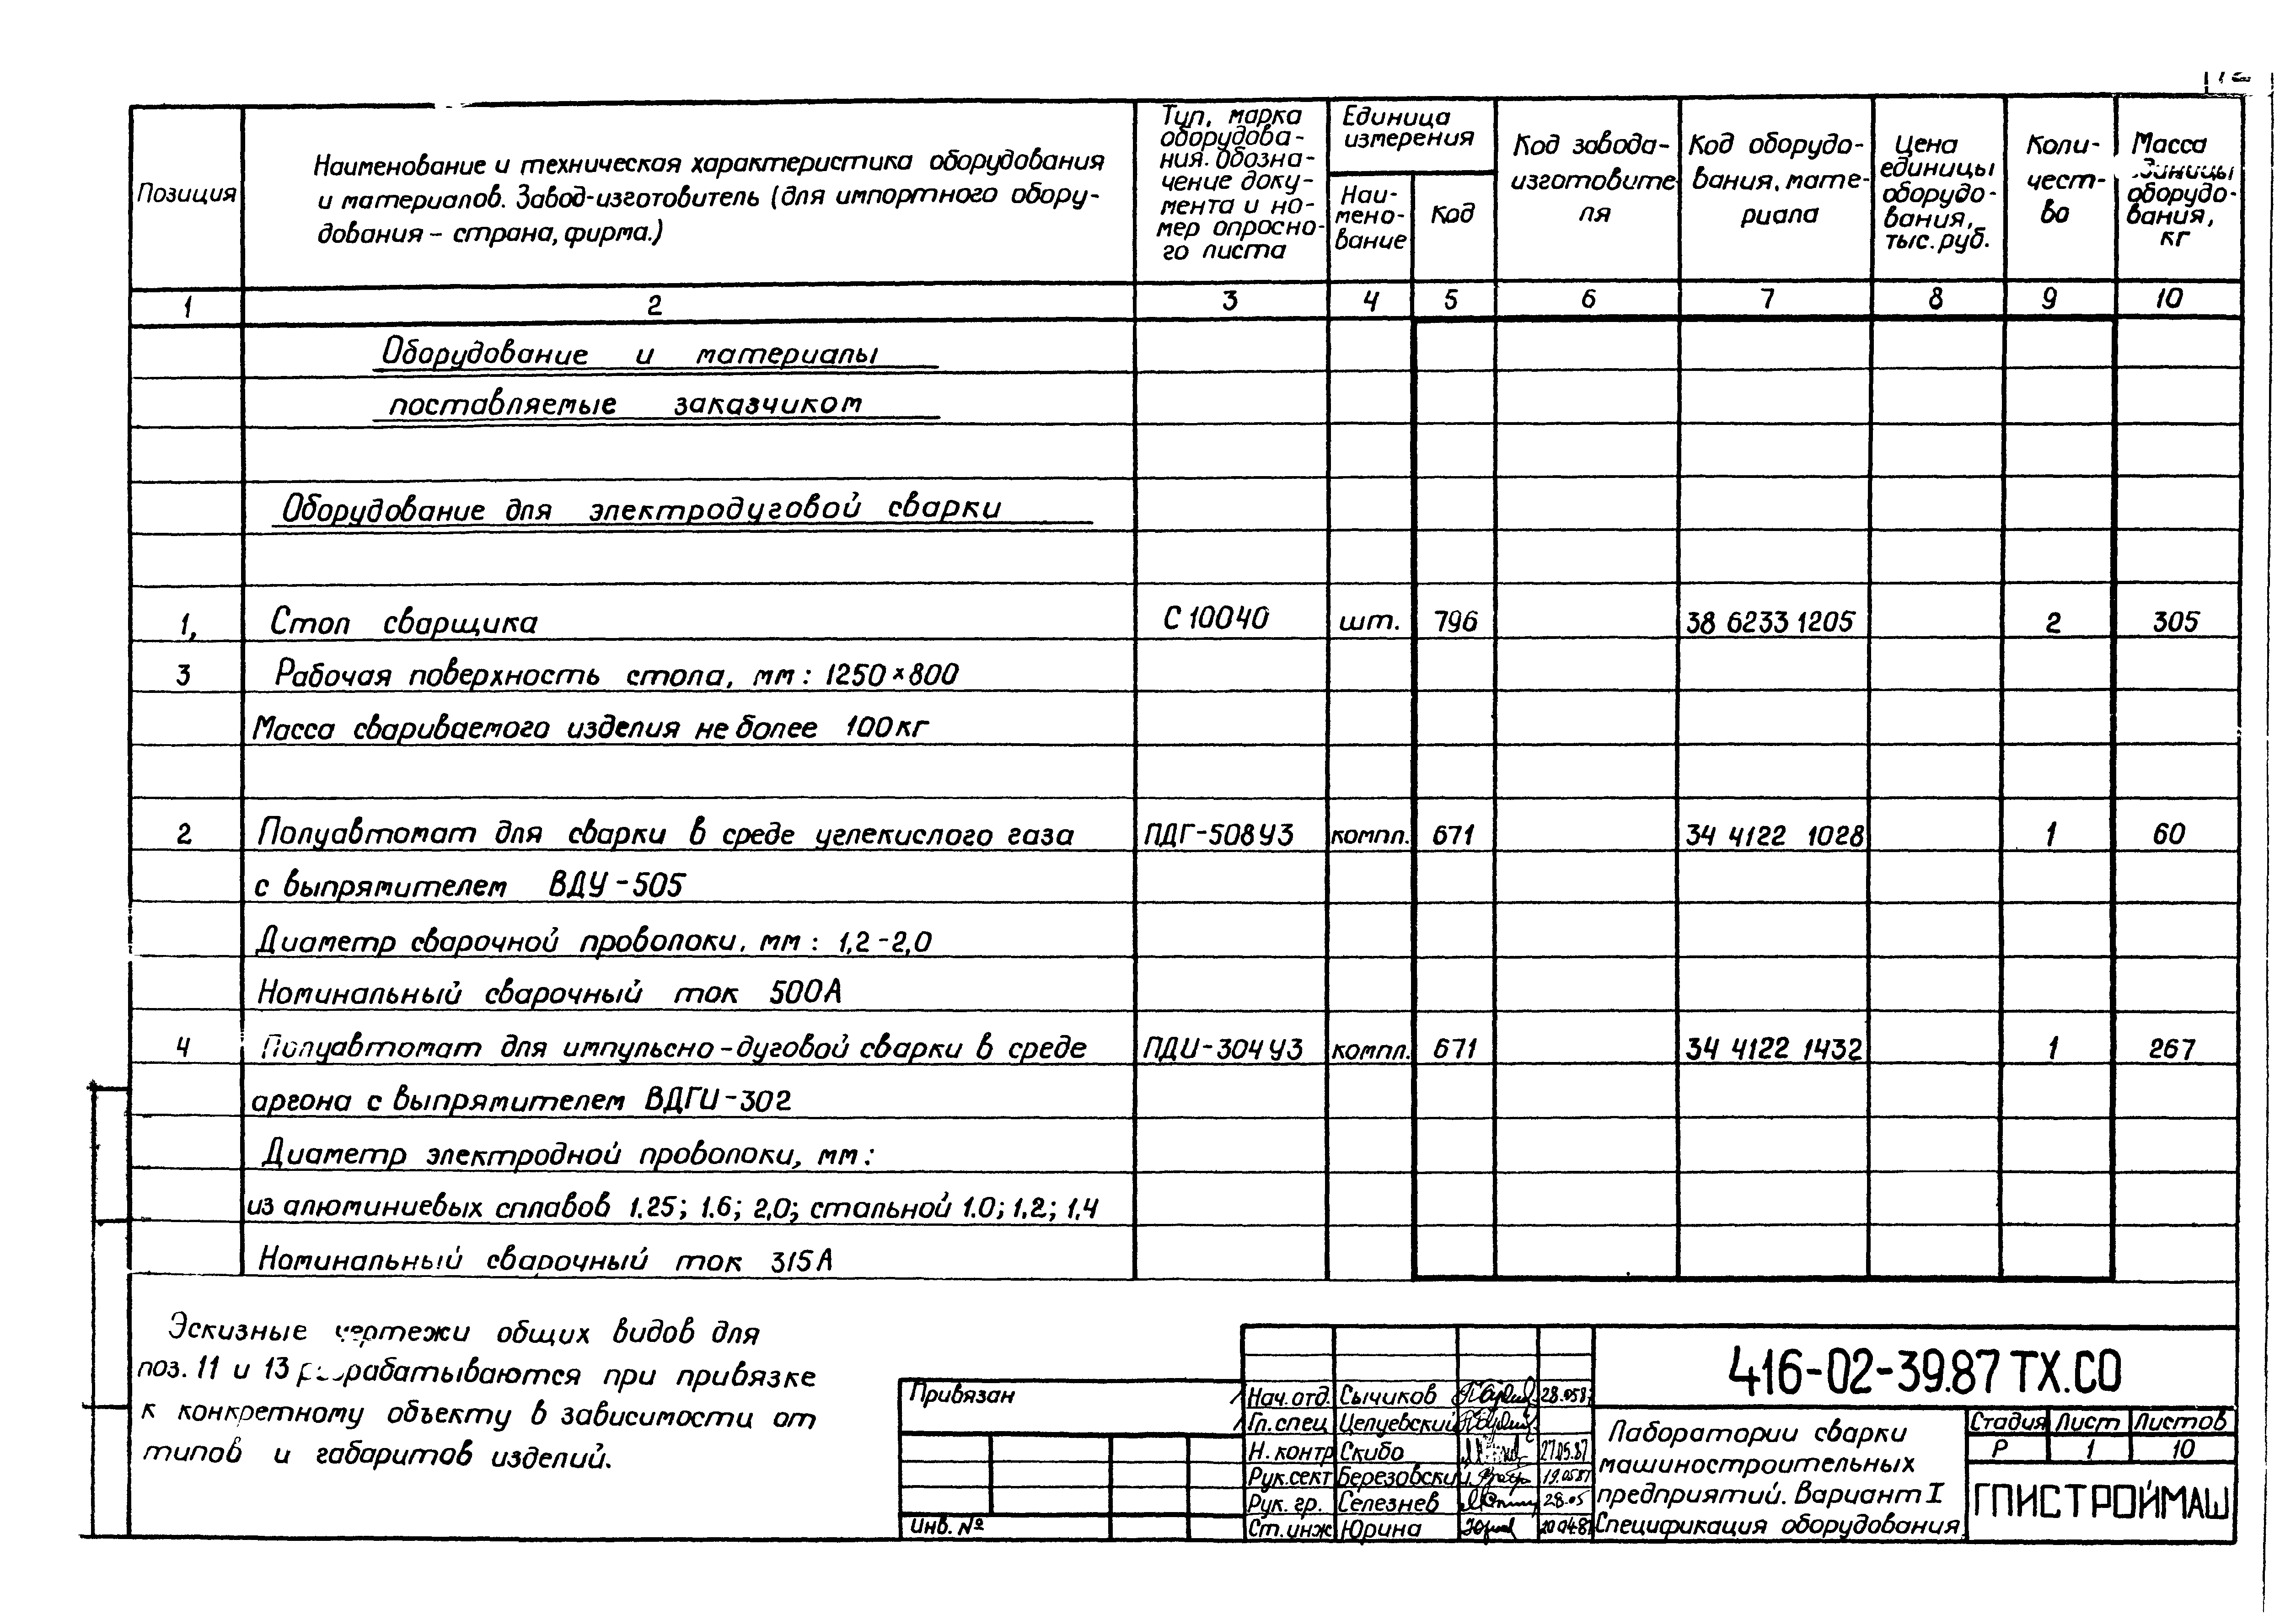 Позиция
Наименование и техническая характеристика оборудования
и материалов. Завод-изготовитель (для импортного обору-
дования – страна, фирма.)
Тип, марка
оборудова-
ния. Обозна-
чение доку-
мента и но-
мер опросно-
го листа
Единица
измерения
Наи-
мено-
вание
Код
Код завода-
изготовите
ля
Код оборудо-
вания, мате-
риала
Цена
единицы
оборудо-
вания,
тыс. руб.
Коли-
чест-
во
Масса
единицы
оборудо-
вания,
кг
1 2 3 4 5 6 7 8 9 10
Оборудование и материалы
поставляемые заказчиком
Оборудование для электродуговой сварки
1, Стол сварщика С 10040 шт. 796 38 6233 1205 2 305
3 Рабочая поверхность стола, мм: 1250×800
Масса свариваемого изделия не более 100кг
2 Полуавтомат для сварки в среде углекислого газа ПДГ-508У3 компл. 671 34 4122 1028 1 60
с выпрямителем ВДУ-505
Диаметр сварочной проволоки, мм: 1,2-2,0
Номинальный сварочный ток 500А
4 Полуавтомат для импульсно-дуговой сварки в среде ПДИ-304У3 компл. 671 34 4122 1432 1 267
аргона с выпрямителем ВДГИ-302
Диаметр электродной проволоки, мм:
из алюминиевых сплавов 1.25; 1.6; 2,0; стальной 1.0; 1.2; 1,4
Номинальный сварочный ток 315А
Эскизные чертежи общих видов для
поз. 11 и 13 разрабатываются при привязке
к конкретному объекту в зависимости от
типов и габаритов изделий.
Привязан
Инв. №
Нач. отд. Сычиков 28.0587
Гл. спец Целуевский
Н. контр Скибо 27.05.87
Рук. сект Березовский 19.0587
Рук. гр. Селезнев 28.05
Ст. инж Юрина
416-02-39.87 ТХ.СО
Лаборатории сварки
машиностроительных
предприятий. Вариант I
Спецификация оборудования.
Стадия Лист Листов
Р 1 10
ГПИСТРОЙМАШ